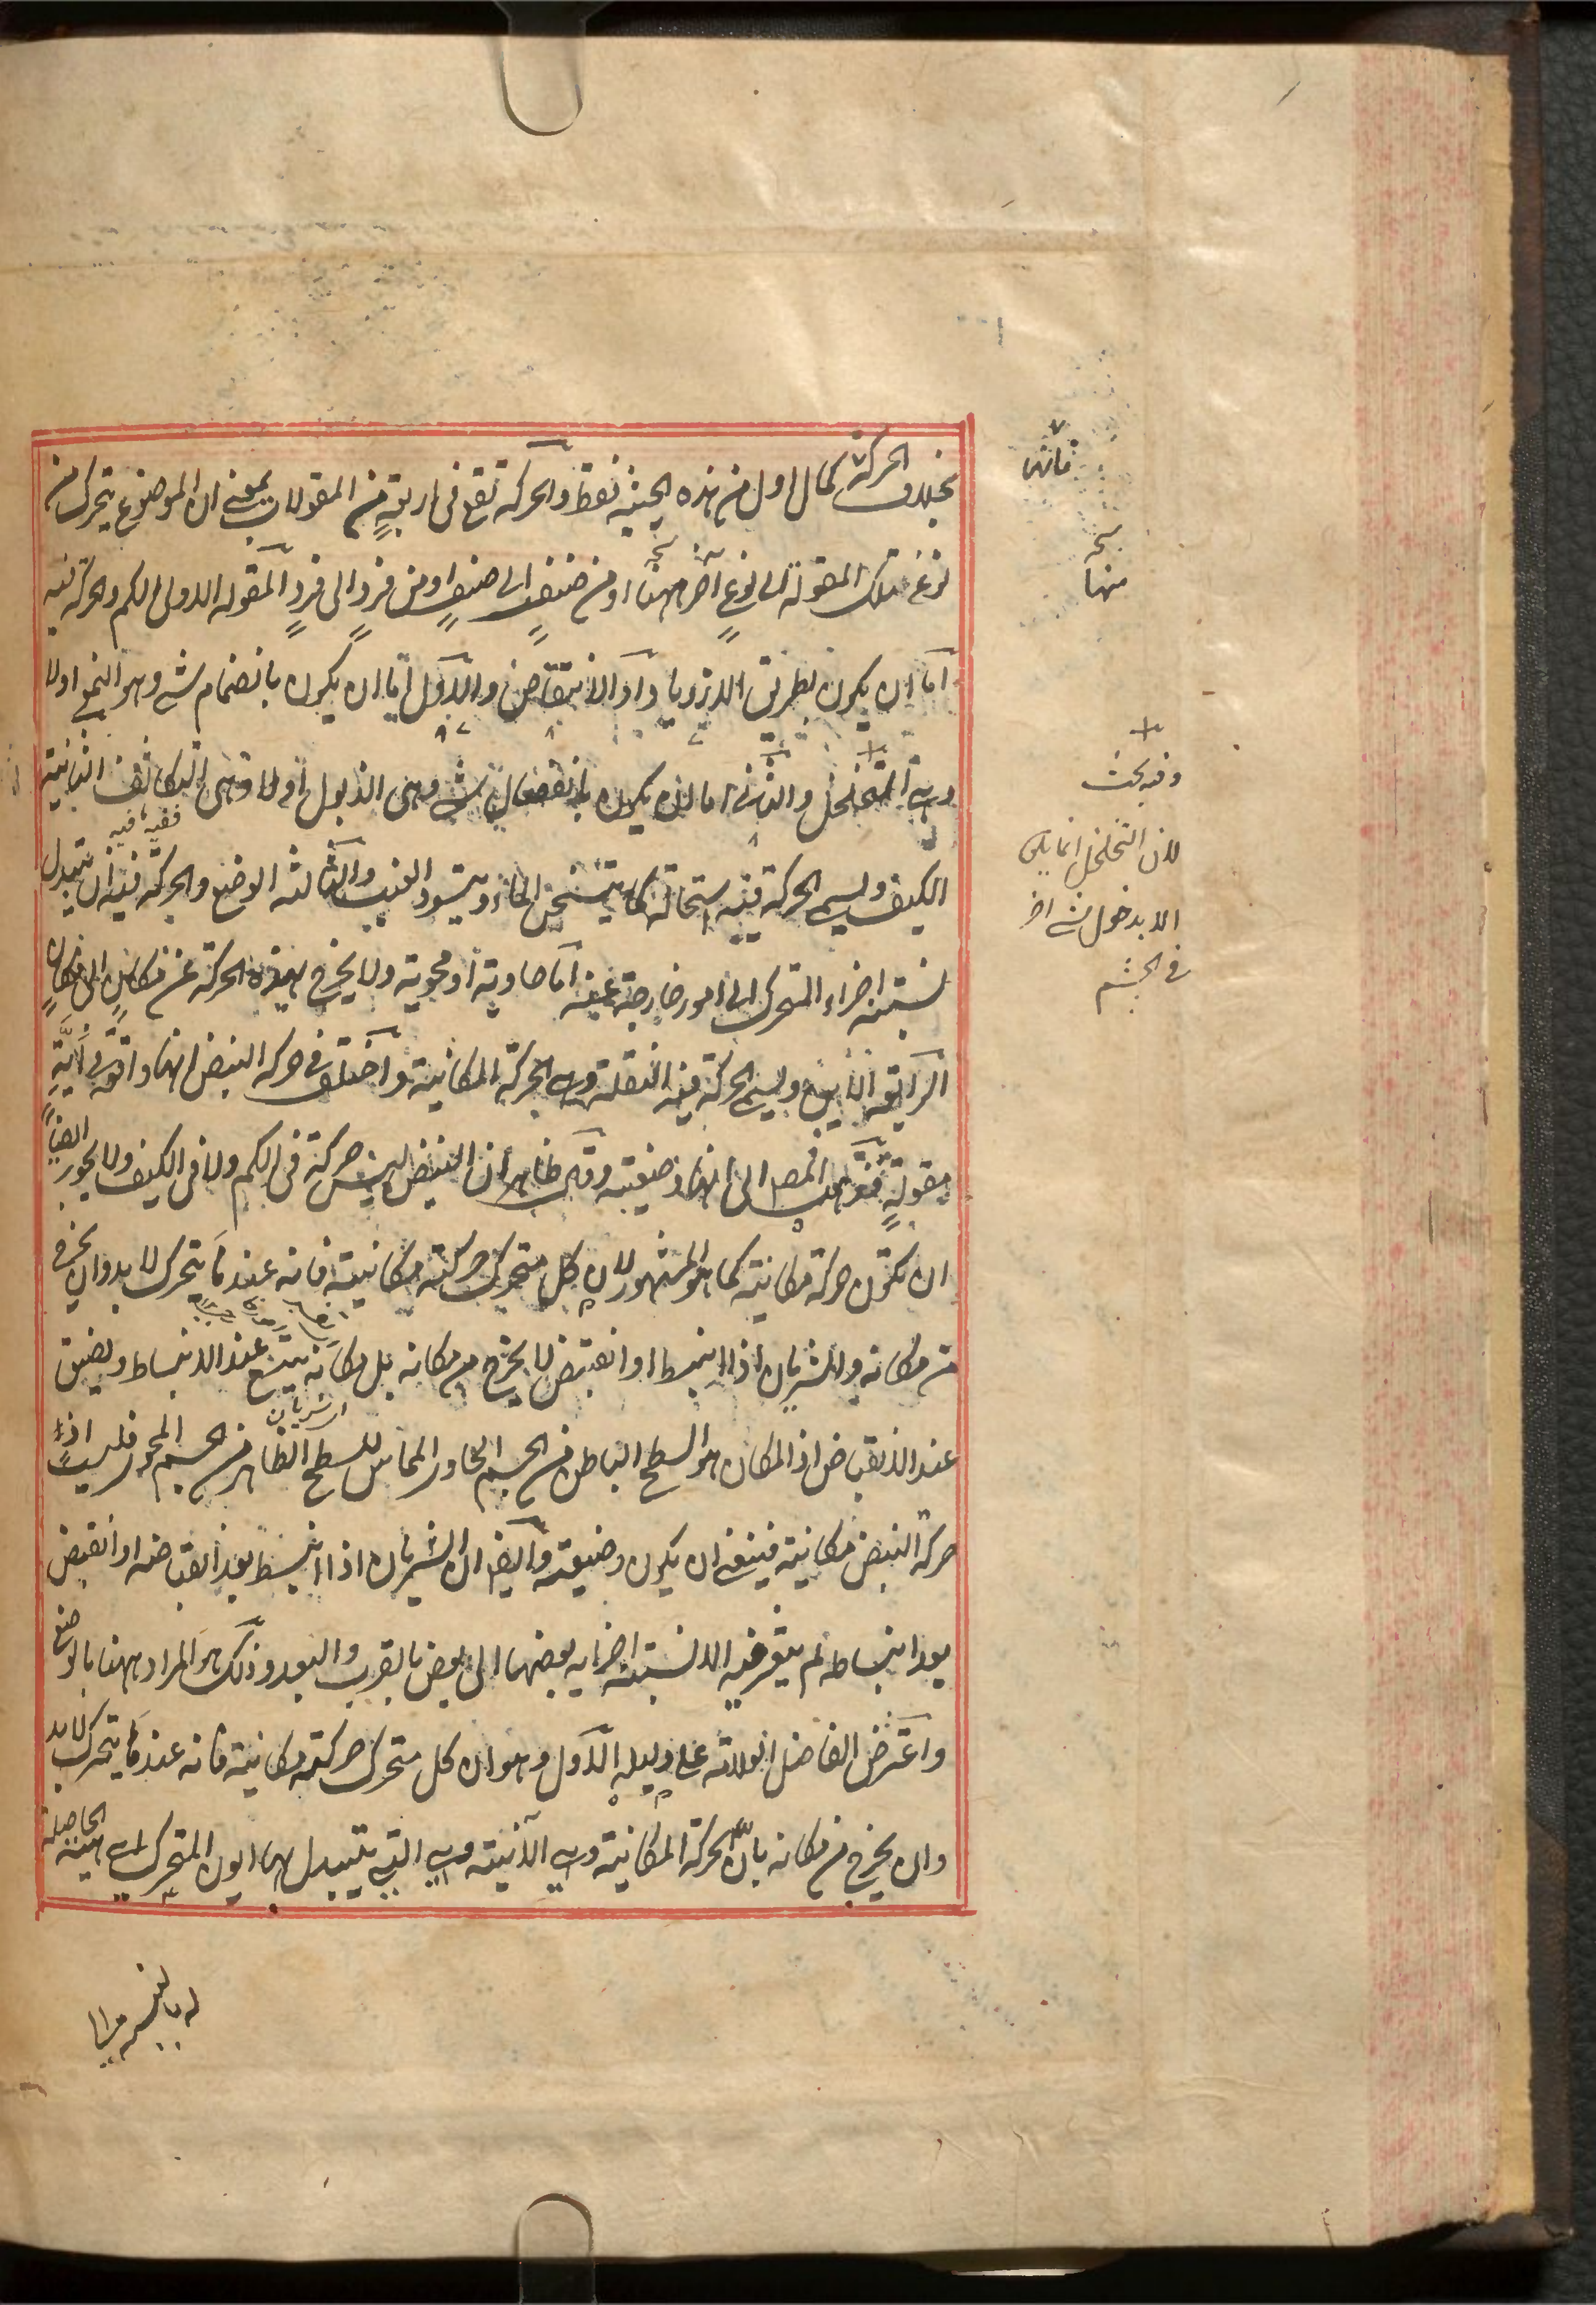 بخلاف الحركة كمال اول من هذه الحيثية فقط والحركة تقع فى اربعة من المقولات بمعنى ان الموضوع يتحرك من
نوع تلك المقولة الى نوع آخر منها او من صنف الى صنف او من فرد الى فرد المقولة الاولى الكم والحركة فيه
اما ان يكون بطريق الازدياد او الانتقاص والاول اما ان يكون بانضمام شى وهو النمو اولا
وهى التخلخل والثانى اما ان يكون بانفصال شى وهى الذبول اولا وهى التكاثف الثانية
الكيف ويسمى الحركة فيه استحالة كما يتسخن الماء ويتسود العنب والثالثة الوضع والحركة فيه ان يتبدل
نسبة اجزاء المتحرك الى امور خارجة عنه اما حاوية او محوية ولا يخرج بهذه الحركة عن مكان الى مكان
الرابعة الاين ويسمى الحركة فيه النقلة وهى الحركة المكانية واختلف فى حركة النبض انها واقعة فى اية
مقولة فذهب المص الى انها وضعية وقال ظاهر ان النبض ليس حركة فى الكم ولا فى الكيف ولا يجوز ايضا
ان تكون حركة مكانية كما هو المشهور لان كل متحرك حركته مكانية فانه عندما يتحرك لا بد وان يخرج
من مكانه والشريان اذا انبسط او انقبض لا يخرج من مكانه بل مكانه يتسع عند الانبساط ويضيق
عند الانقباض اذ المكان هو السطح الباطن من الجسم الحاوى المماس للسطح الظاهر من الجسم المحوى فليست اذا
حركة النبض مكانية فينبغى ان يكون وضعية وايضا ان الشريان اذا انبسط بعد انقباضه او انقبض
بعد انبساطه لم يتغير فيه الا نسبة اجزايه بعضها الى بعض بالقرب والبعد وذلك هو المراد ههنا بالوضع
واعترض الفاضل العلامة على دليله الاول وهو ان كل متحرك حركته مكانية فانه عندما يتحرك لا بد
وان يخرج من مكانه بان الحركة المكانية وهى الاينية وهى التى يتبدل بها ايون المتحرك اى هيئة الحاصلة
نسخه
منها
وفيه بحث
لان التخلخل انما يكون
الا بدخول شى اخر
فى الجسم